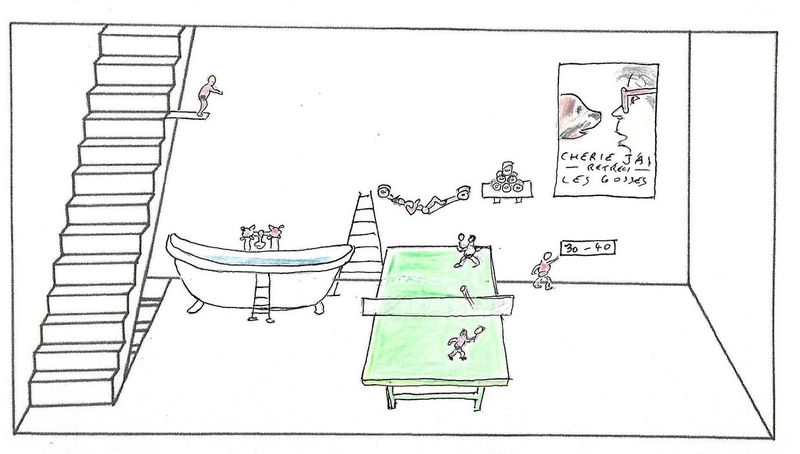 CHERIE J'AI
— RETRECI —
LES GOSSES
30 - 40